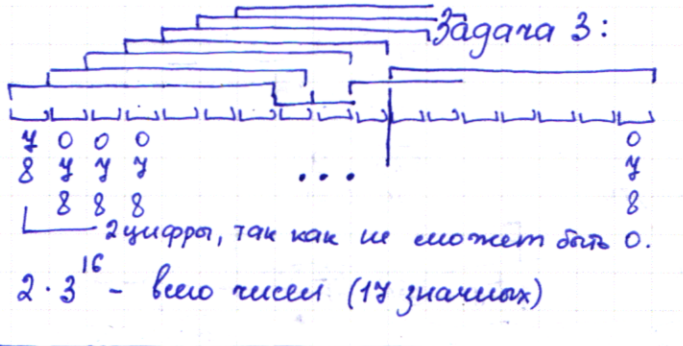 Задача 3:
7 0 0 0 0
8 7 7 7 ... 7
8 8 8 8
2 цифры, так как не может быть 0.
2 · 3^16 - всего чисел (17 значных)